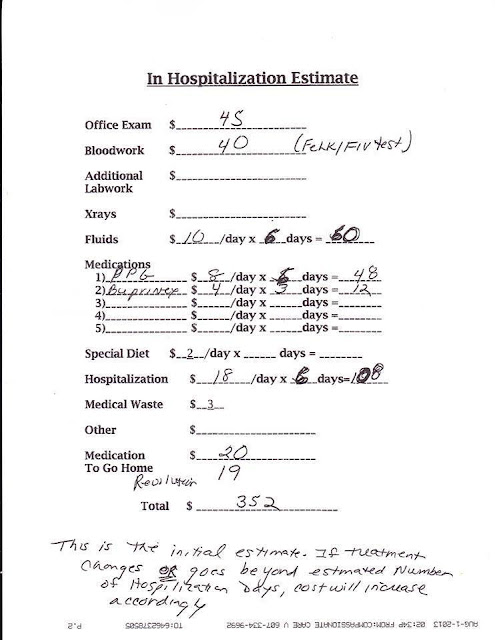 In Hospitalization Estimate
Office Exam $ 45
Bloodwork $ 40 (FeLK/FIV test)
Additional
Labwork $
Xrays $
Fluids $ 10 /day x 6 days = 60
Medications
1) PPG $ 8 /day x 6 days = 48
2) Buprinex $ 4 /day x 3 days = 12
3) $ /day x days =
4) $ /day x days =
5) $ /day x days =
Special Diet $ 2 /day x days =
Hospitalization $ 18 /day x 6 days= 108
Medical Waste $ 3
Other $
Medication $ 20
To Go Home 19
Revolution
Total $ 352
This is the initial estimate. If treatment
Changes OR goes beyond estimated Number
of Hospitilization Days, cost will increase
accordingly
AUG-1-2013 02:34P FROM:COMPASSIONATE V CARE 607-334-9692 TO:6462378505 P.2